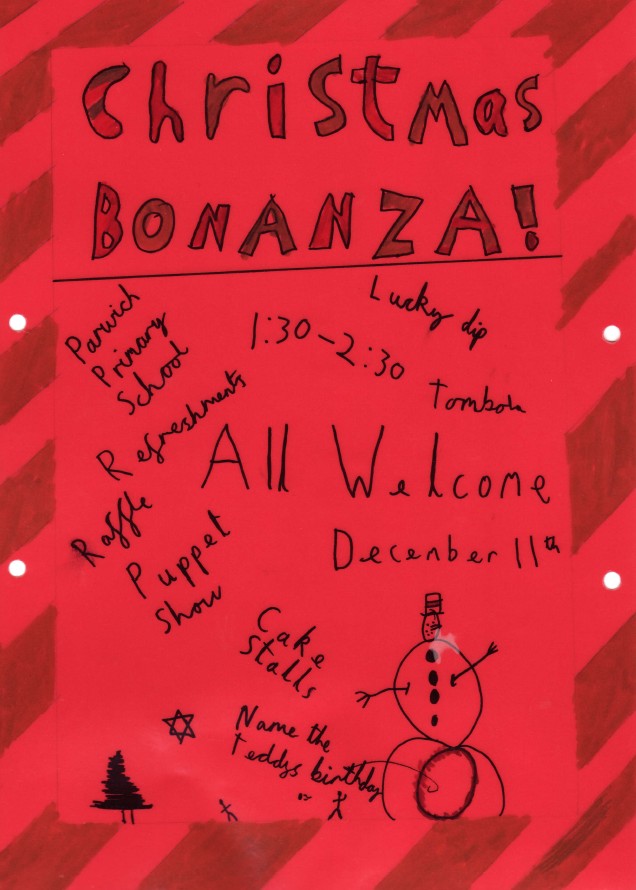 Christmas
BONANZA!
Parwich
Primary
School
1:30-2:30
Lucky dip
Tombola
Refreshments
All Welcome
Raffle
December 11th
Puppet
Show
Cake
Stalls
Name the
teddys birthday